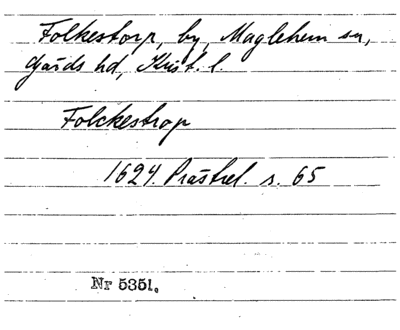 Folkestorp, by, Maglehem sn,
Gärds hd, Krist. l.
Folckestrop
1624. Prästrel. s. 65
Nr 5351.